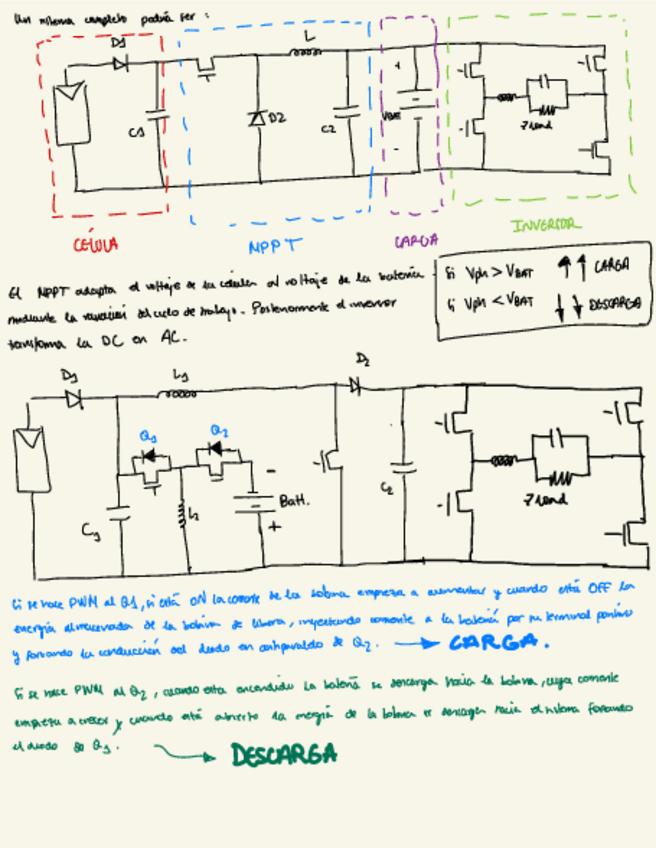 Un sistema completo podría ser:
D1
L
C1
D2
C2
VBAT
+
-
Zload
CÉLULA
MPPT
CARGA
INVERSOR
El MPPT adapta el voltaje de la célula al voltaje de la batería
mediante la variación del ciclo de trabajo. Posteriormente el inversor
transforma la DC en AC.
Si Vph > VBAT ↑↑ CARGA
Si Vph < VBAT ↓↓ DESCARGA
D1
L1
D2
Q1
Q2
L2
-
Batt.
+
C1
C2
Zload
Si se hace PWM al Q1, si está ON la corriente de la bobina empieza a aumentar y cuando está OFF la
energía almacenada de la bobina se libera, inyectando corriente a la batería por su terminal positivo
y forzando la conducción del diodo en antiparalelo de Q2. → CARGA.
Si se hace PWM al Q2, cuando esta encendido la batería se descarga hacia la bobina, cuya corriente
empieza a crecer y cuando está abierto la energía de la bobina se descarga hacia el sistema forzando
el diodo de Q1. → DESCARGA